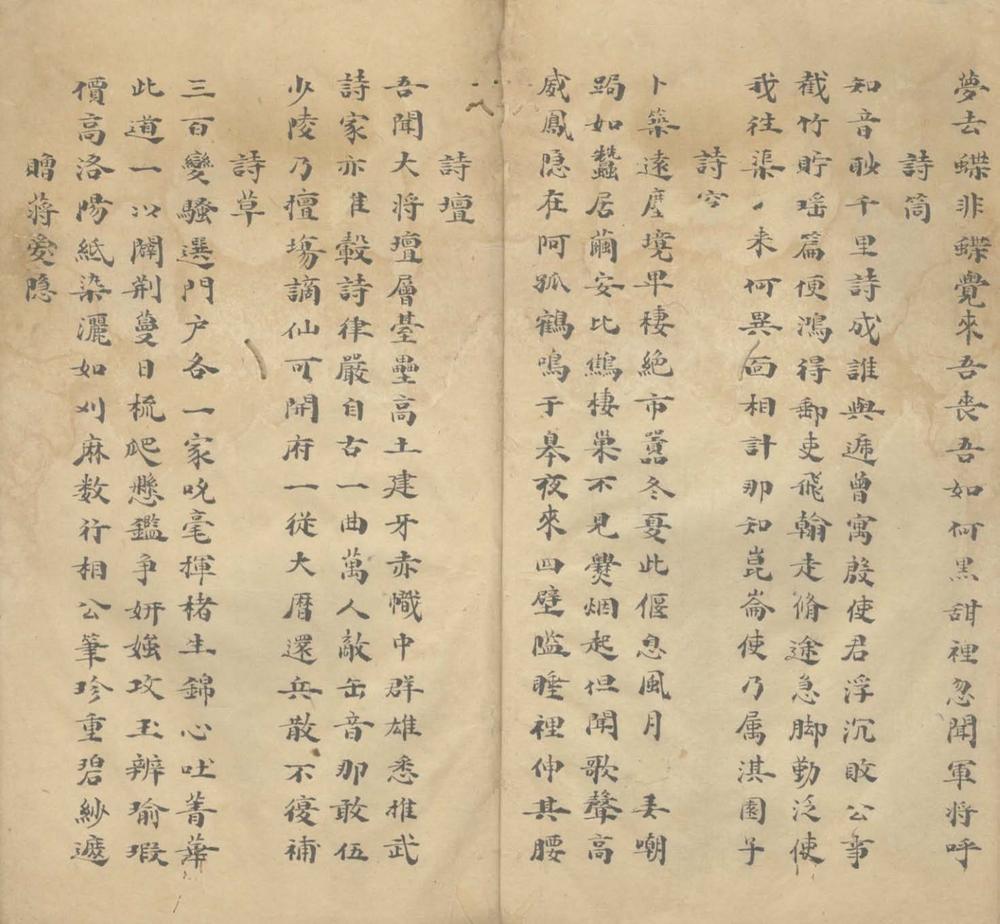 夢去蝶非蝶覺來吾喪吾如何黒甜裡忽聞軍將呼
詩筒
知音耿千里詩成誰與逓曾寓殷使君浮沉敗公事
截竹貯瑶篇便鴻得郵吏飛翰走脩途急脚勤泛使
我往渠〻来何異面相計那知崑崙使乃属淇園子
詩穵
卜築遠塵境卑棲絶市囂冬夏此偃息風月 嘲
跼如蠶居繭安比鷦棲巢不見爨烟起但聞歌聲高
威鳳隠在阿孤鶴鳴于皋夜來四壁隘睡裡伸其腰
詩壇
吾聞大将壇層臺壘高土建牙赤幟中群雄悉推武
詩家亦隹轂詩律嚴自古一曲萬人敵缶音那敢伍
少陵乃擅塲謫仙可開府一從大暦還兵散不復補
詩草
三百變騷選門户各一家吮毫揮楮生錦心吐菁華
此道一以闢荆蔓日梳爬懸鑑争妍媸攻玉辨瑜瑕
價高洛陽紙染灑如刈麻数行相公筆珍重碧紗遮
贈蒋愛隠